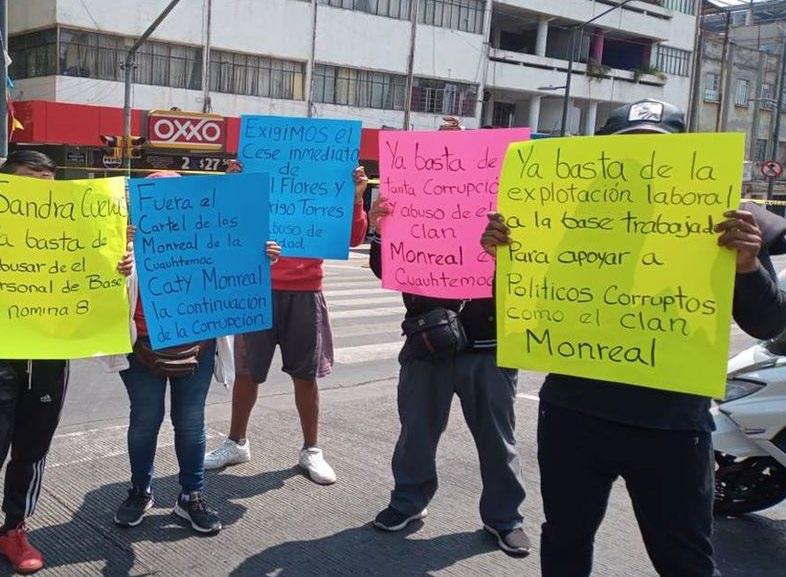 OXXO
2 $27
Sandra Cuevas
Ya basta de
abusar de el
Personal de Base
nomina 8
Fuera el
Cartel de los
Monreal de la
Cuauhtemoc
Caty Monreal
la continuación
de la Corrupción
Exigimos el
Cese inmediato
de
Flores y
Torres
abuso de
Ya basta de
tanta Corrupcio
y abuso de el
Clan
Monreal e
Cuauhtemoc
Ya basta de la
explotación laboral
a la base trabajad
Para apoyar a
Politicos Corruptos
como el clan
Monreal